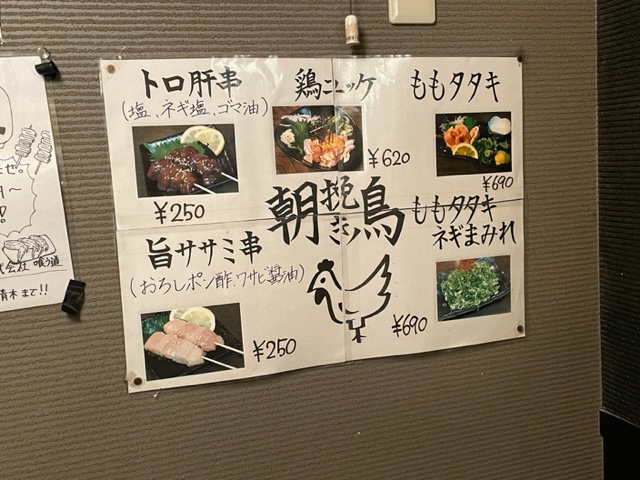 トロ肝串
(塩、ネギ塩、ゴマ油)
¥250
鶏ユッケ
¥620
ももタタキ
¥690
朝挽き鳥
旨ササミ串
(おろしポン酢、ワサビ醤油)
¥250
ももタタキ
ネギまみれ
¥690
せ。
喰う道
青木まで!!